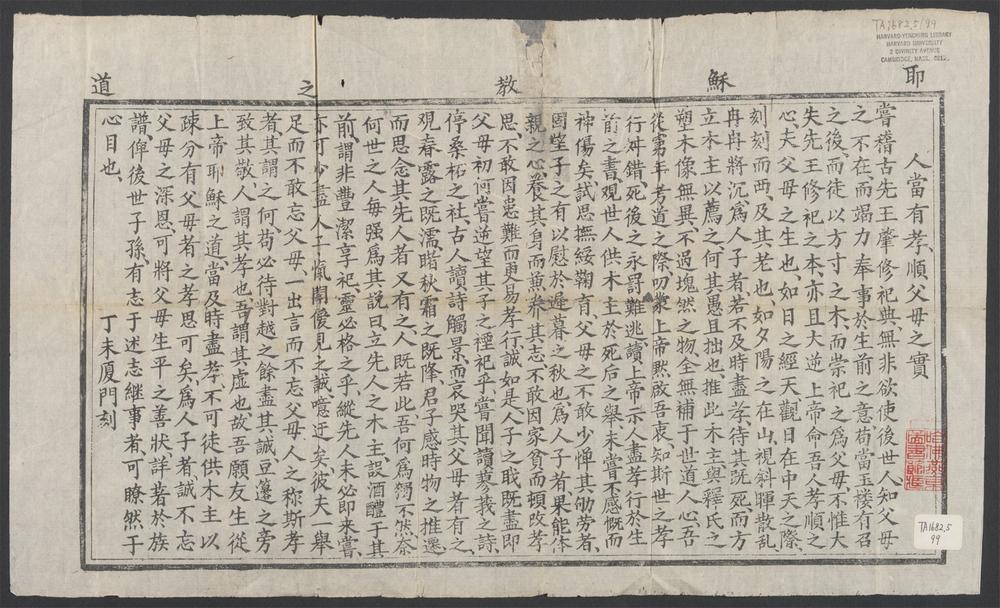 TA1682.5/99
HARVARD-YENCHING LIBRARY
HARVARD UNIVERSITY
2 DIVINITY AVENUE
CAMBRIDGE, MASS.
耶穌教之道
人當有孝順父母之實
嘗稽古先王肇修祀典、無非欲使後世人知父母
之不在、而竭力奉事於生前之意、苟當玉楼有召
之後、而徒以方寸之木、而崇祀之為父母、不惟大
失先王修祀之本、亦且大逆上帝命吾人孝順之
心、夫父母之生也、如日之經天、觀日在中天之際、
刻刻而西、及其老也、如夕陽之在山、視斜暉散乱
冉冉將沉、為人子者、若不及時盡孝、待其既死、而方
立木主以薦之、何其愚且拙也、推此木主與釋氏之
塑木像無異、不過塊然之物、全無補于世道人心、吾
從年考道之際、叨蒙上帝默啟吾衷、知斯世之孝
行舛錯、死後之永罰難逃、讀上帝示人盡孝行於生
前之書、觀世人供木主於死后之舉、未嘗不感慨而
神傷矣、試思撫綏鞠育、父母之不敢少憚其劬勞者、
固望子之有以慰於遲暮之秋也、為人子者、果能体
親之心、養其身、而兼养其志、不敢因家貧而頓改孝
思、不敢因患難而更易孝行、誠如是、人子之職既盡、即
父母初何嘗逆望其子之禋祀乎、嘗聞讀蓼莪之詩、
停桑柘之社、古人讀詩觸景、而哀哭其父母者有之、
觀春露之既濡、睹秋霜之既降、君子感時物之推遷
而思念其先人者又有之、人既若此、吾何為獨不然、奈
何世之人、每强為其說曰、立先人之木主、設酒醴于其
前、謂非豐潔享祀、靈必格之乎、縱先人未必即來嘗、
亦可少盡人子愾聞僾見之誠、噫迂矣、彼夫一舉
足而不敢忘父母、一出言而不忘父母、人之称斯孝
者、其謂之何、苟必待對越之餘、盡其誠、豆籩之旁
致其敬、人謂其孝也、吾謂其虚也、故吾願友生從
上帝耶穌之道、當及時盡孝、不可徒供木主、以
疎分、有父母者之孝思可矣、為人子者、誠不忘
父母之深恩、可將父母生平之善狀、詳著於族
譜、俾後世子孫、有志于述志継事者、可瞭然于
心目也、
丁未厦門刻
TA1682.5
99